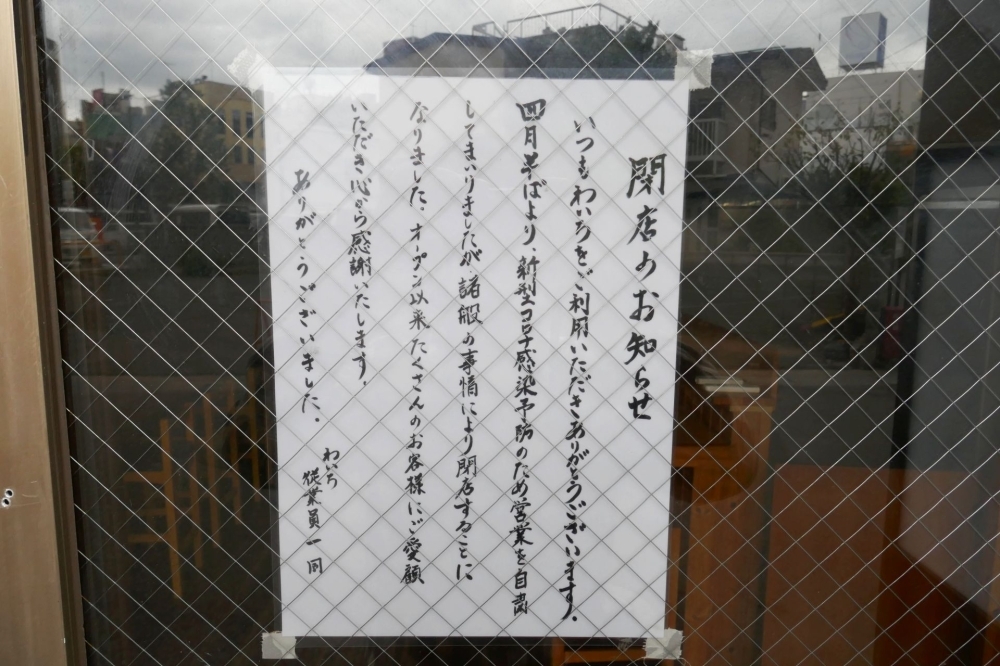 閉店のお知らせ
いつもわいろをご利用いただきありがとうございます。
四月半ばより、新型コロナ感染予防のため営業を自粛
してまいりましたが、諸般の事情により閉店することに
なりました。オープン以来たくさんのお客様にご愛顧
いただき心から感謝いたします。
ありがとうございました。
わいろ
従業員一同